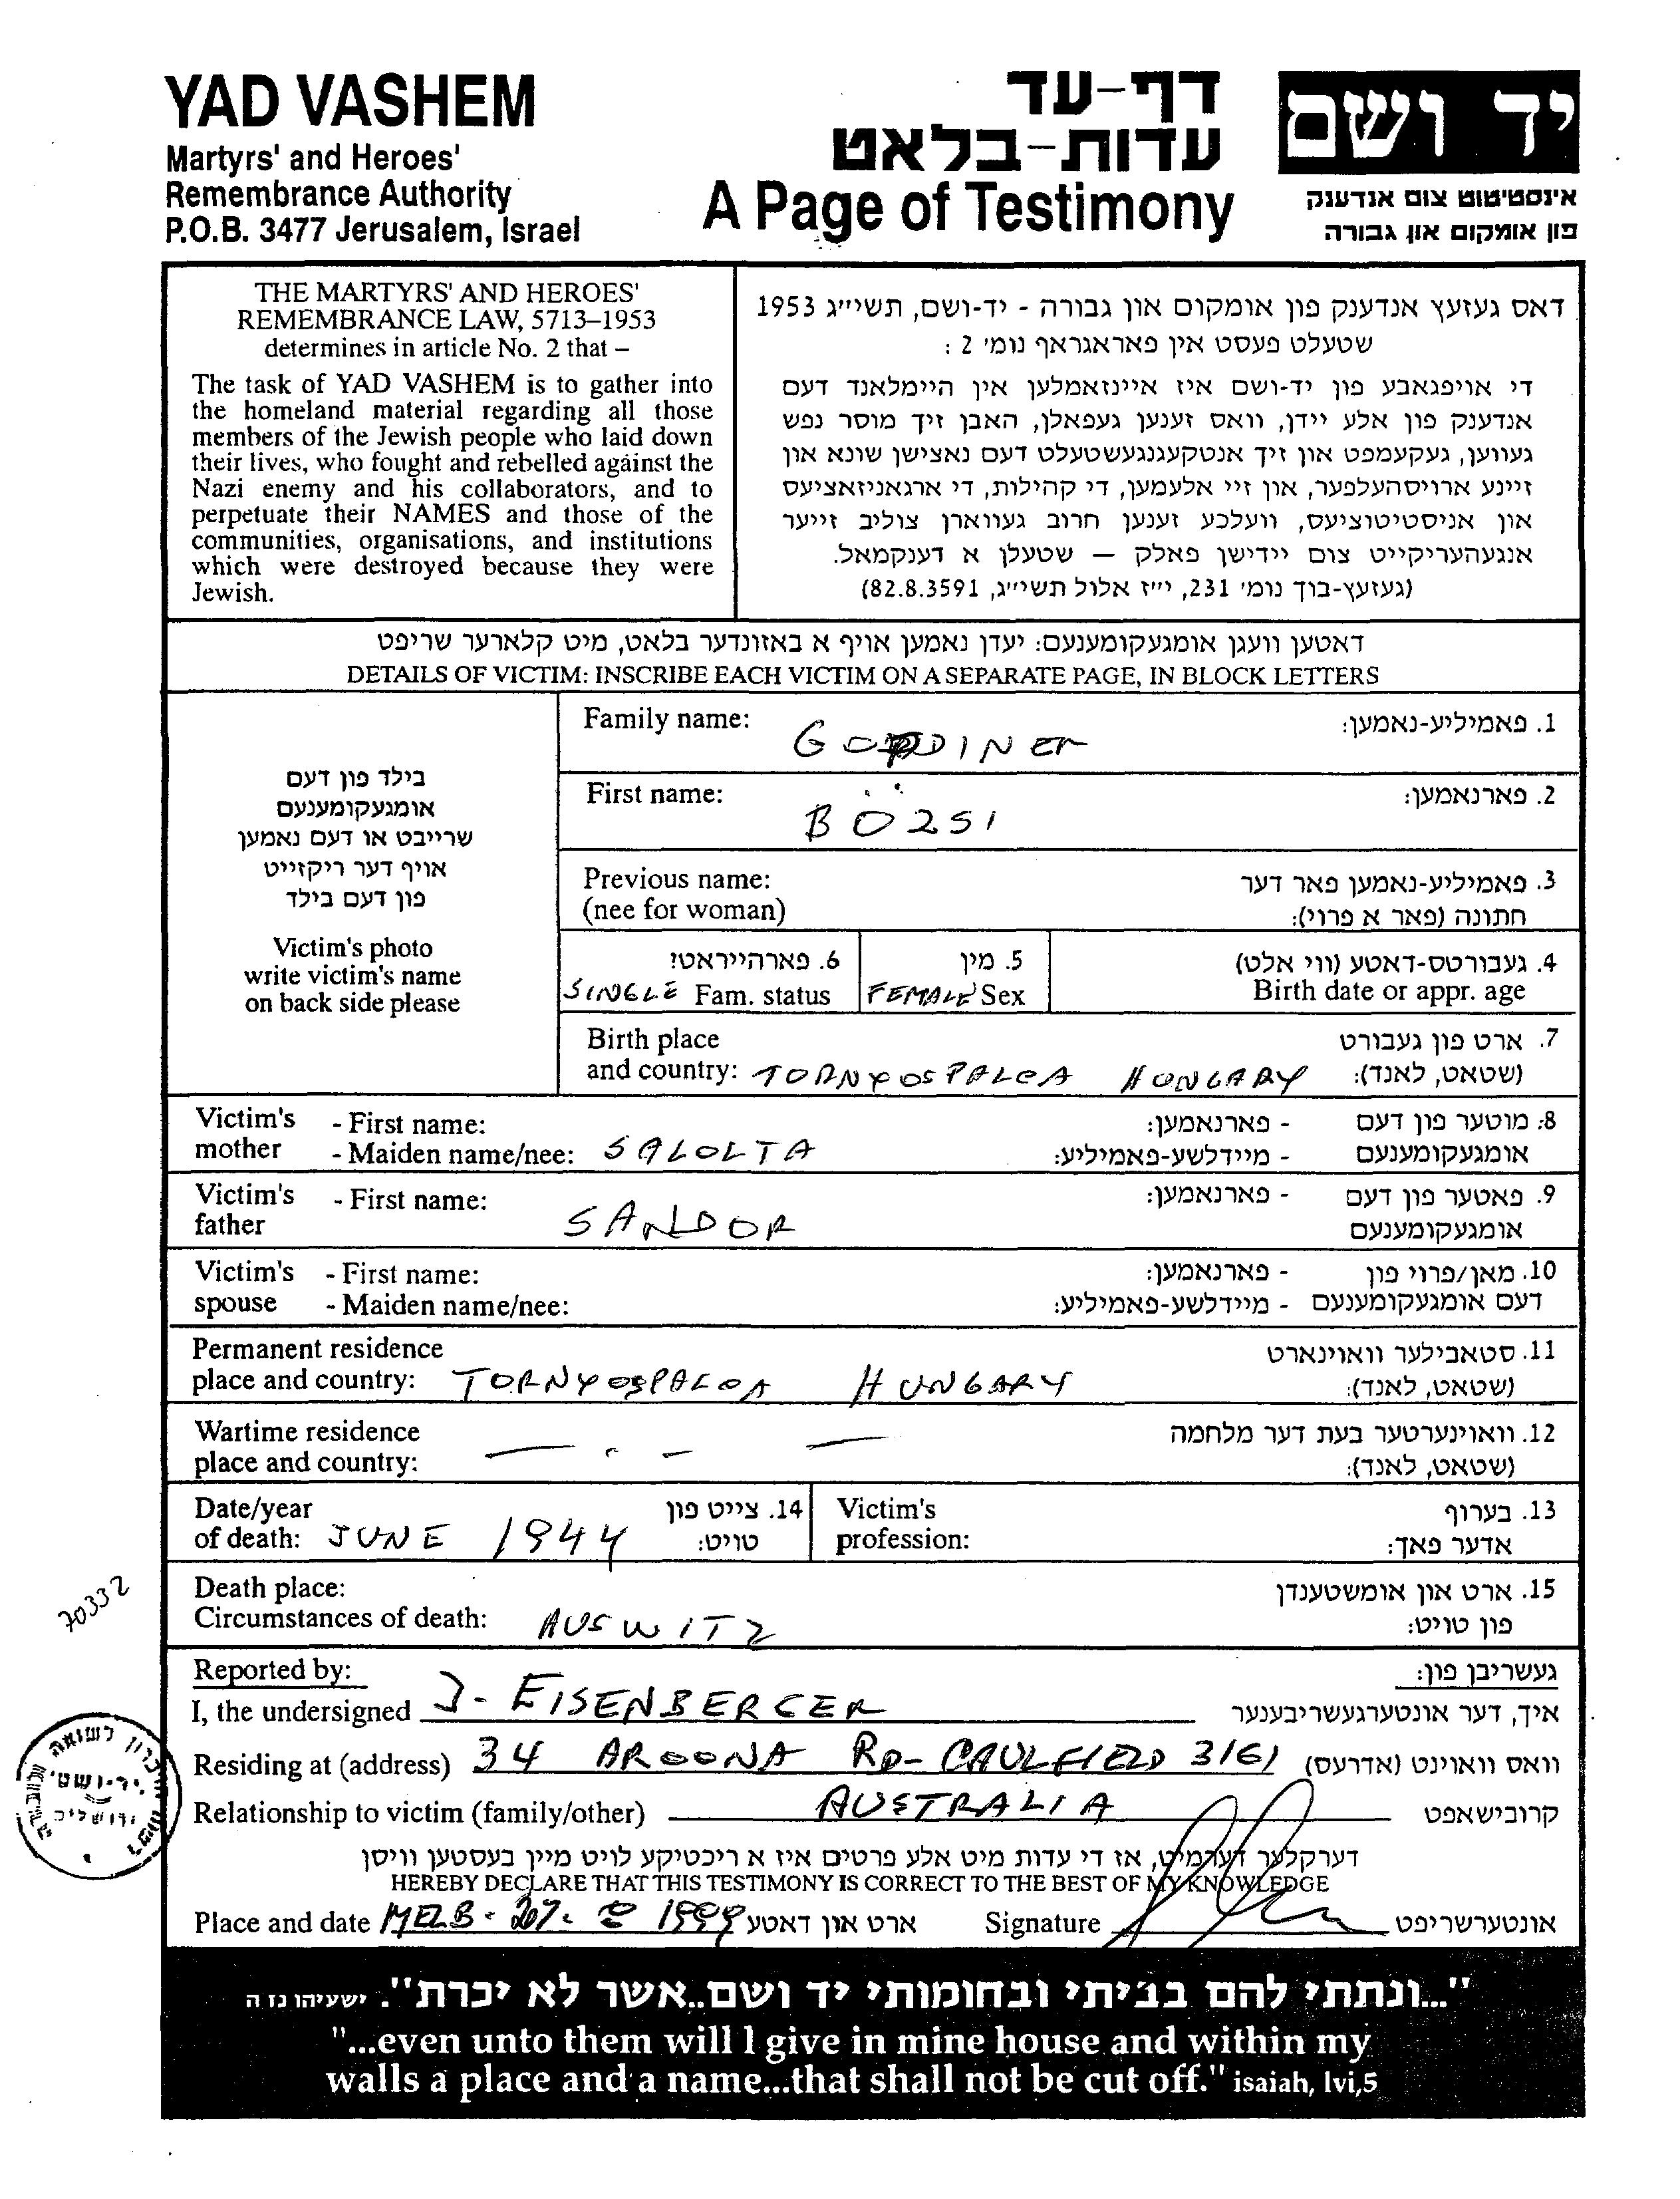 YAD VASHEM
Martyrs' and Heroes'
Remembrance Authority
P.O.B. 3477 Jerusalem, Israel
דף-עד
עדות-בלאט
A Page of Testimony
יד ושם
אינסטיטוט צום אנדענק
פון אומקום און גבורה
THE MARTYRS' AND HEROES'
REMEMBRANCE LAW, 5713–1953
determines in article No. 2 that –
The task of YAD VASHEM is to gather into
the homeland material regarding all those
members of the Jewish people who laid down
their lives, who fought and rebelled against the
Nazi enemy and his collaborators, and to
perpetuate their NAMES and those of the
communities, organisations, and institutions
which were destroyed because they were
Jewish.
דאס געזעץ אנדענק פון אומקום און גבורה - יד-ושם, תשי״ג 1953
שטעלט פעסט אין פאראגראף נומ׳ 2 :
די אויפגאבע פון יד-ושם איז איינזאמלען אין היימלאנד דעם
אנדענק פון אלע יידן, וואס זענען געפאלן, האבן זיך מוסר נפש
געווען, געקעמפט און זיך אנטקעגנגעשטעלט דעם נאצישן שונא און
זיינע ארויסהעלפער, און זיי אלעמען, די קהילות, די ארגאניזאציעס
און אניסטיטוציעס, וועלכע זענען חרוב געווארן צוליב זייער
אנגעהעריקייט צום יידישן פאלק — שטעלן א דענקמאל.
(געזעץ-בוך נומ׳ 231, י״ז אלול תשי״ג, 82.8.3591)
דאטען וועגן אומגעקומענעם: יעדן נאמען אויף א באזונדער בלאט, מיט קלארער שריפט
DETAILS OF VICTIM: INSCRIBE EACH VICTIM ON A SEPARATE PAGE, IN BLOCK LETTERS
בילד פון דעם
אומגעקומענעם
שרייבט או דעם נאמען
אויף דער ריקזייט
פון דעם בילד
Victim's photo
write victim's name
on back side please
Family name: 1. פאמיליע-נאמען:
First name: BÖZSI 2. פארנאמען:
Previous name: 3. פאמיליע-נאמען פאר דער
(nee for woman) חתונה (פאר א פרוי):
6. פארהייראט? 5. מין 4. געבורטס-דאטע (ווי אלט)
SINGLE Fam. status FEMALE Sex Birth date or appr. age
Birth place 7. ארט פון געבורט
and country: TORNYOSPALCA HUNGARY (שטאט, לאנד):
Victim's - First name: - פארנאמען: 8. מוטער פון דעם
mother - Maiden name/nee: SALOLTA - מיידלשע-פאמיליע: אומגעקומענעם
Victim's - First name: - פארנאמען: 9. פאטער פון דעם
father SANDOR אומגעקומענעם
Victim's - First name: - פארנאמען: 10. מאן/פרוי פון
spouse - Maiden name/nee: - מיידלשע-פאמיליע: דעם אומגעקומענעם
Permanent residence 11. סטאבילער וואוינארט
place and country: TORNYOSPALCA HUNGARY (שטאט, לאנד):
Wartime residence 12. וואוינערטער בעת דער מלחמה
place and country: — · - — (שטאט, לאנד):
Date/year 14. צייט פון Victim's 13. בערוף
of death: JUNE 1944 טויט: profession: אדער פאך:
70332
Death place: 15. ארט און אומשטענדן
Circumstances of death: AUSWITZ פון טויט:
Reported by: געשריבן פון:
I, the undersigned J- EISENBERGER איך, דער אונטערגעשריבענער
Residing at (address) 34 AROONA RD- CAULFIELD 3161 וואס וואוינט (אדרעס)
Relationship to victim (family/other) AUSTRALIA קרובישאפט
דערקלער דערמיט, אז די עדות מיט אלע פרטים איז א ריכטיקע לויט מיין בעסטען וויסן
HEREBY DECLARE THAT THIS TESTIMONY IS CORRECT TO THE BEST OF MY KNOWLEDGE
Place and date MELB- 1999 ארט און דאטע Signature אונטערשריפט
"...ונתתי להם בביתי ובחומותי יד ושם..אשר לא יכרת". ישעיהו נז ה
"...even unto them will I give in mine house and within my
walls a place and a name...that shall not be cut off." isaiah, lvi,5